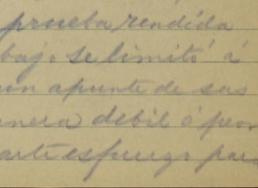 prueba rendida
bajo se limitó á
un apunte de sus
anera debil ó peor
arte esfuerzo para